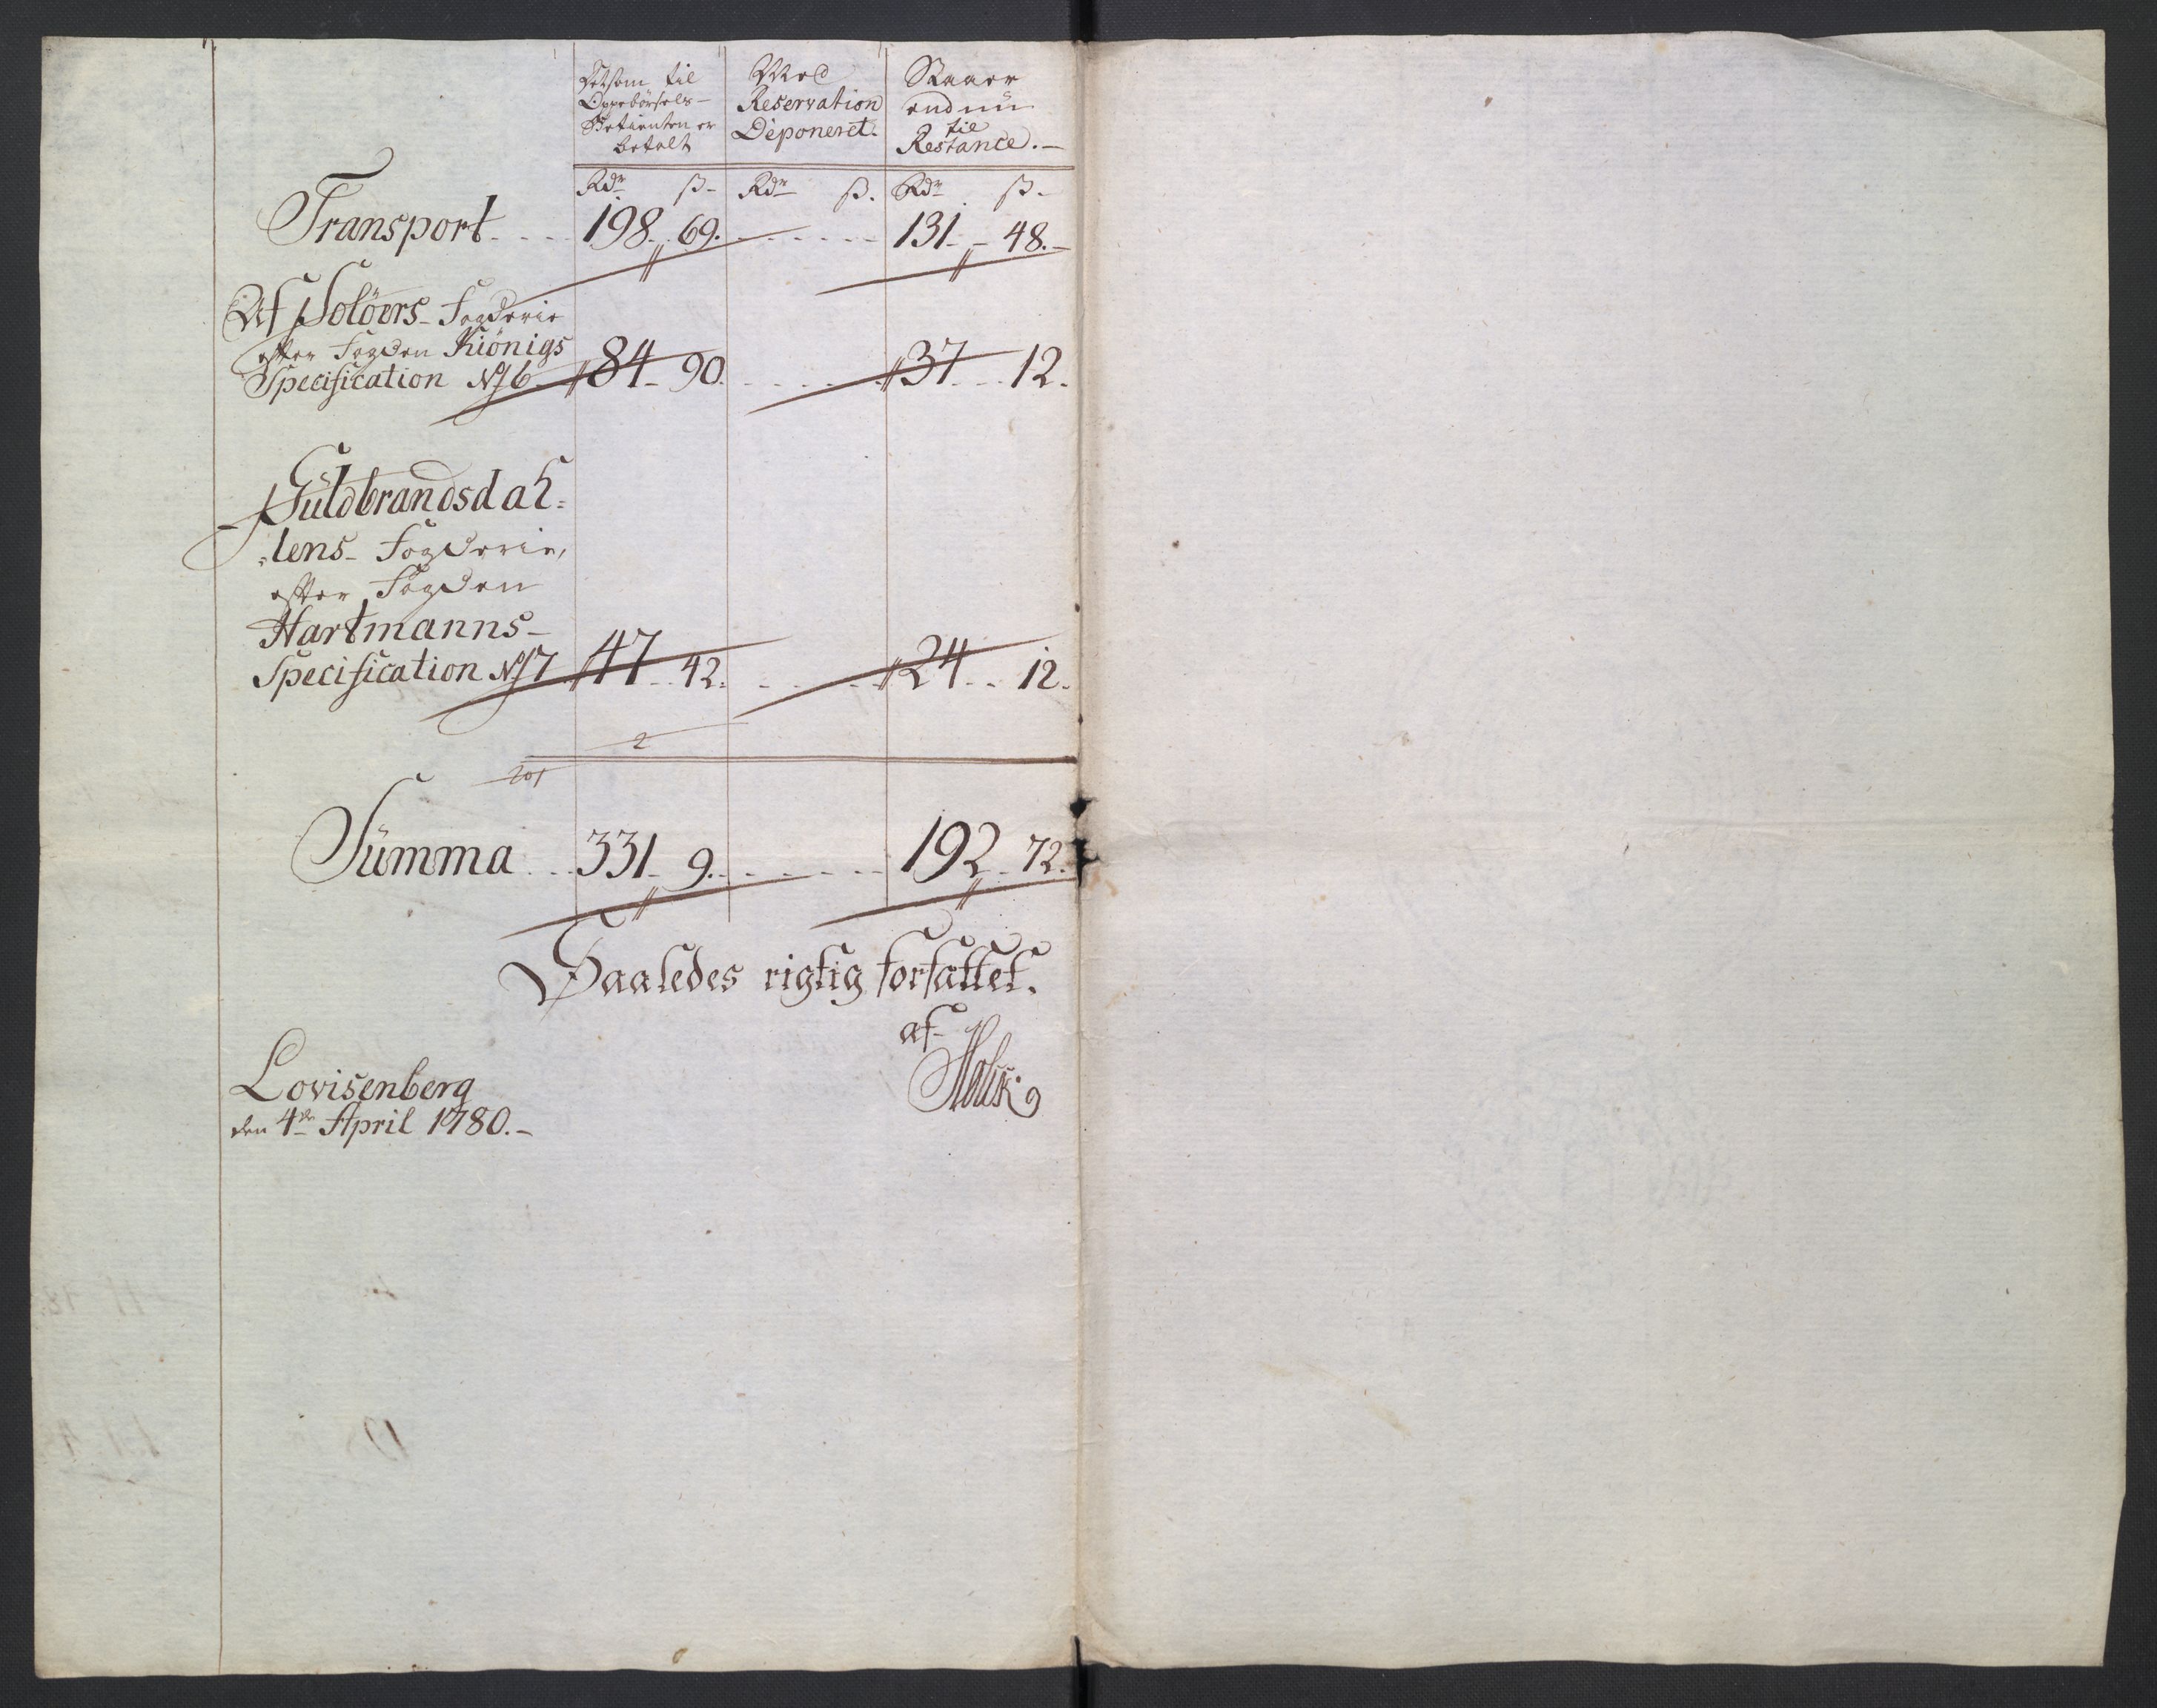 Det som til
Oppebörsels-
Betienten er
betalt
Med
Reservation
Deponeret.
Staaer
endnu
til
Restance.-
Rdr ß- Rdr ß. Rdr ß-
Transport 198 69. 131 48.-
Af Solöers Fogderie
efter Fogden Kiönigs
Specification No 6. 84 90. 37 12.
Guldbrandsdah-
lens Fogderie,
efter Fogden
Hartmanns-
Specification No 7 47 42. 24 12.
2
201
Summa 331 9. 192 72.
Saaledes rigtig forfattet.
af
Lovisenberg
den 4de April 1780.-